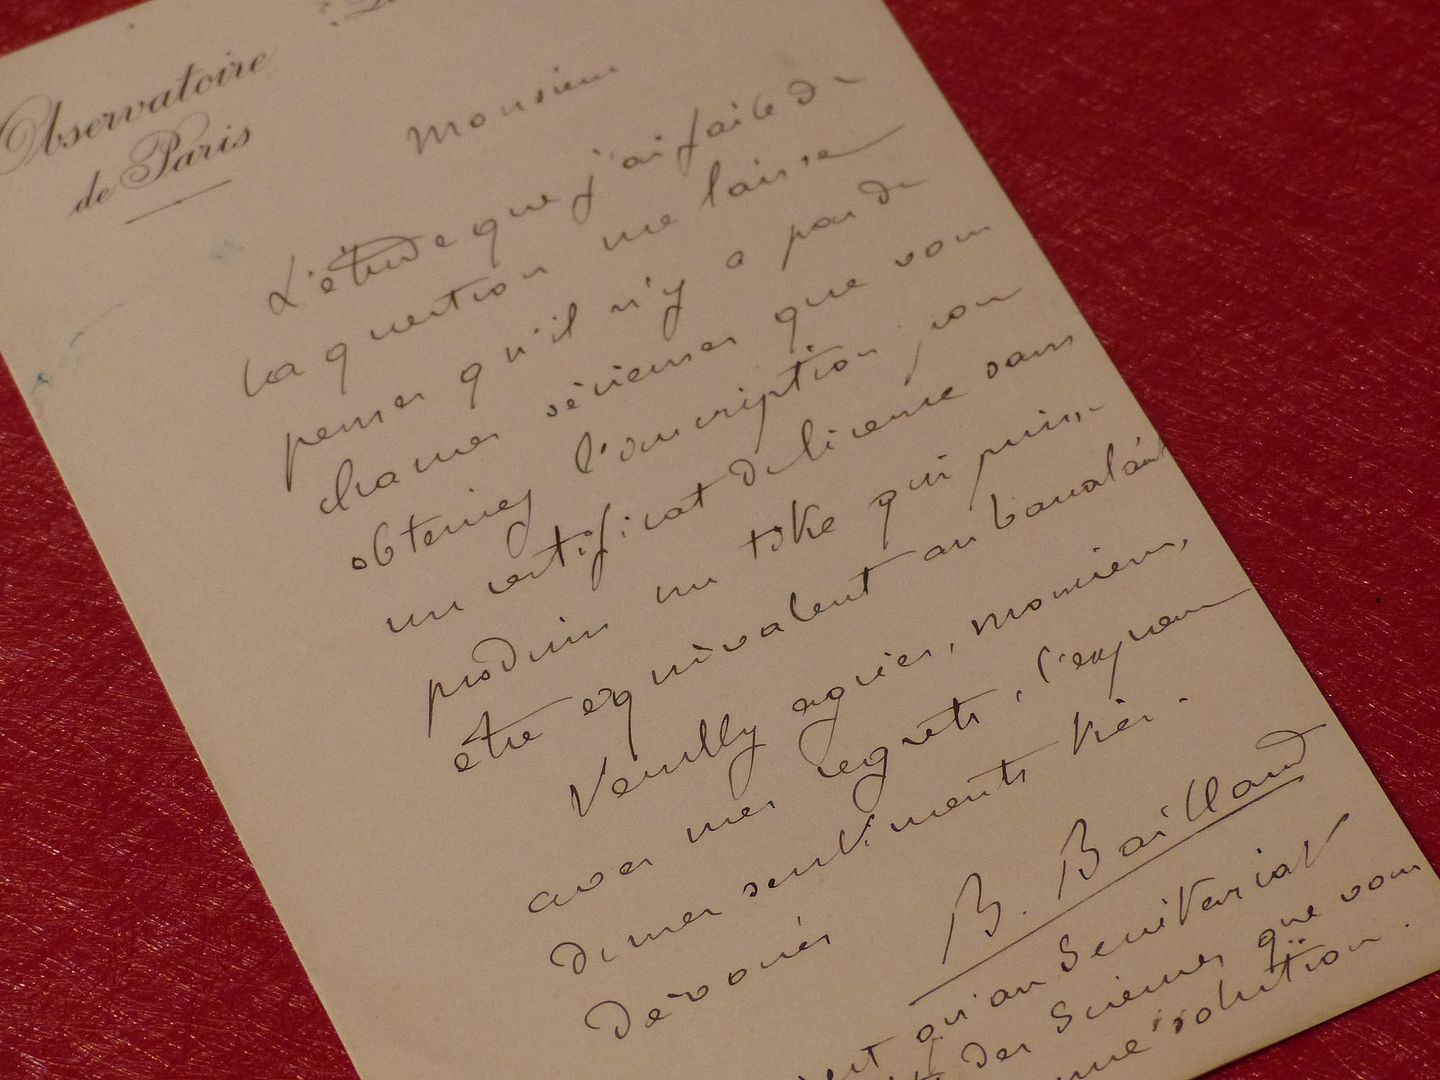 Observatoire
de Paris
Monsieur
L'étude que j'ai faite de
la question me laisse
penser qu'il n'y a pas de
chances sérieuses que vous
obteniez l'inscription pour
un certificat de licence sans
produire un titre qui puisse
être équivalent au baccalauréat
Veuillez agréer, Monsieur,
avec mes regrets, l'expression
de mes sentiments très
dévoués
B. Baillaud
qu'au Secrétariat
des Sciences que vous
une solution.